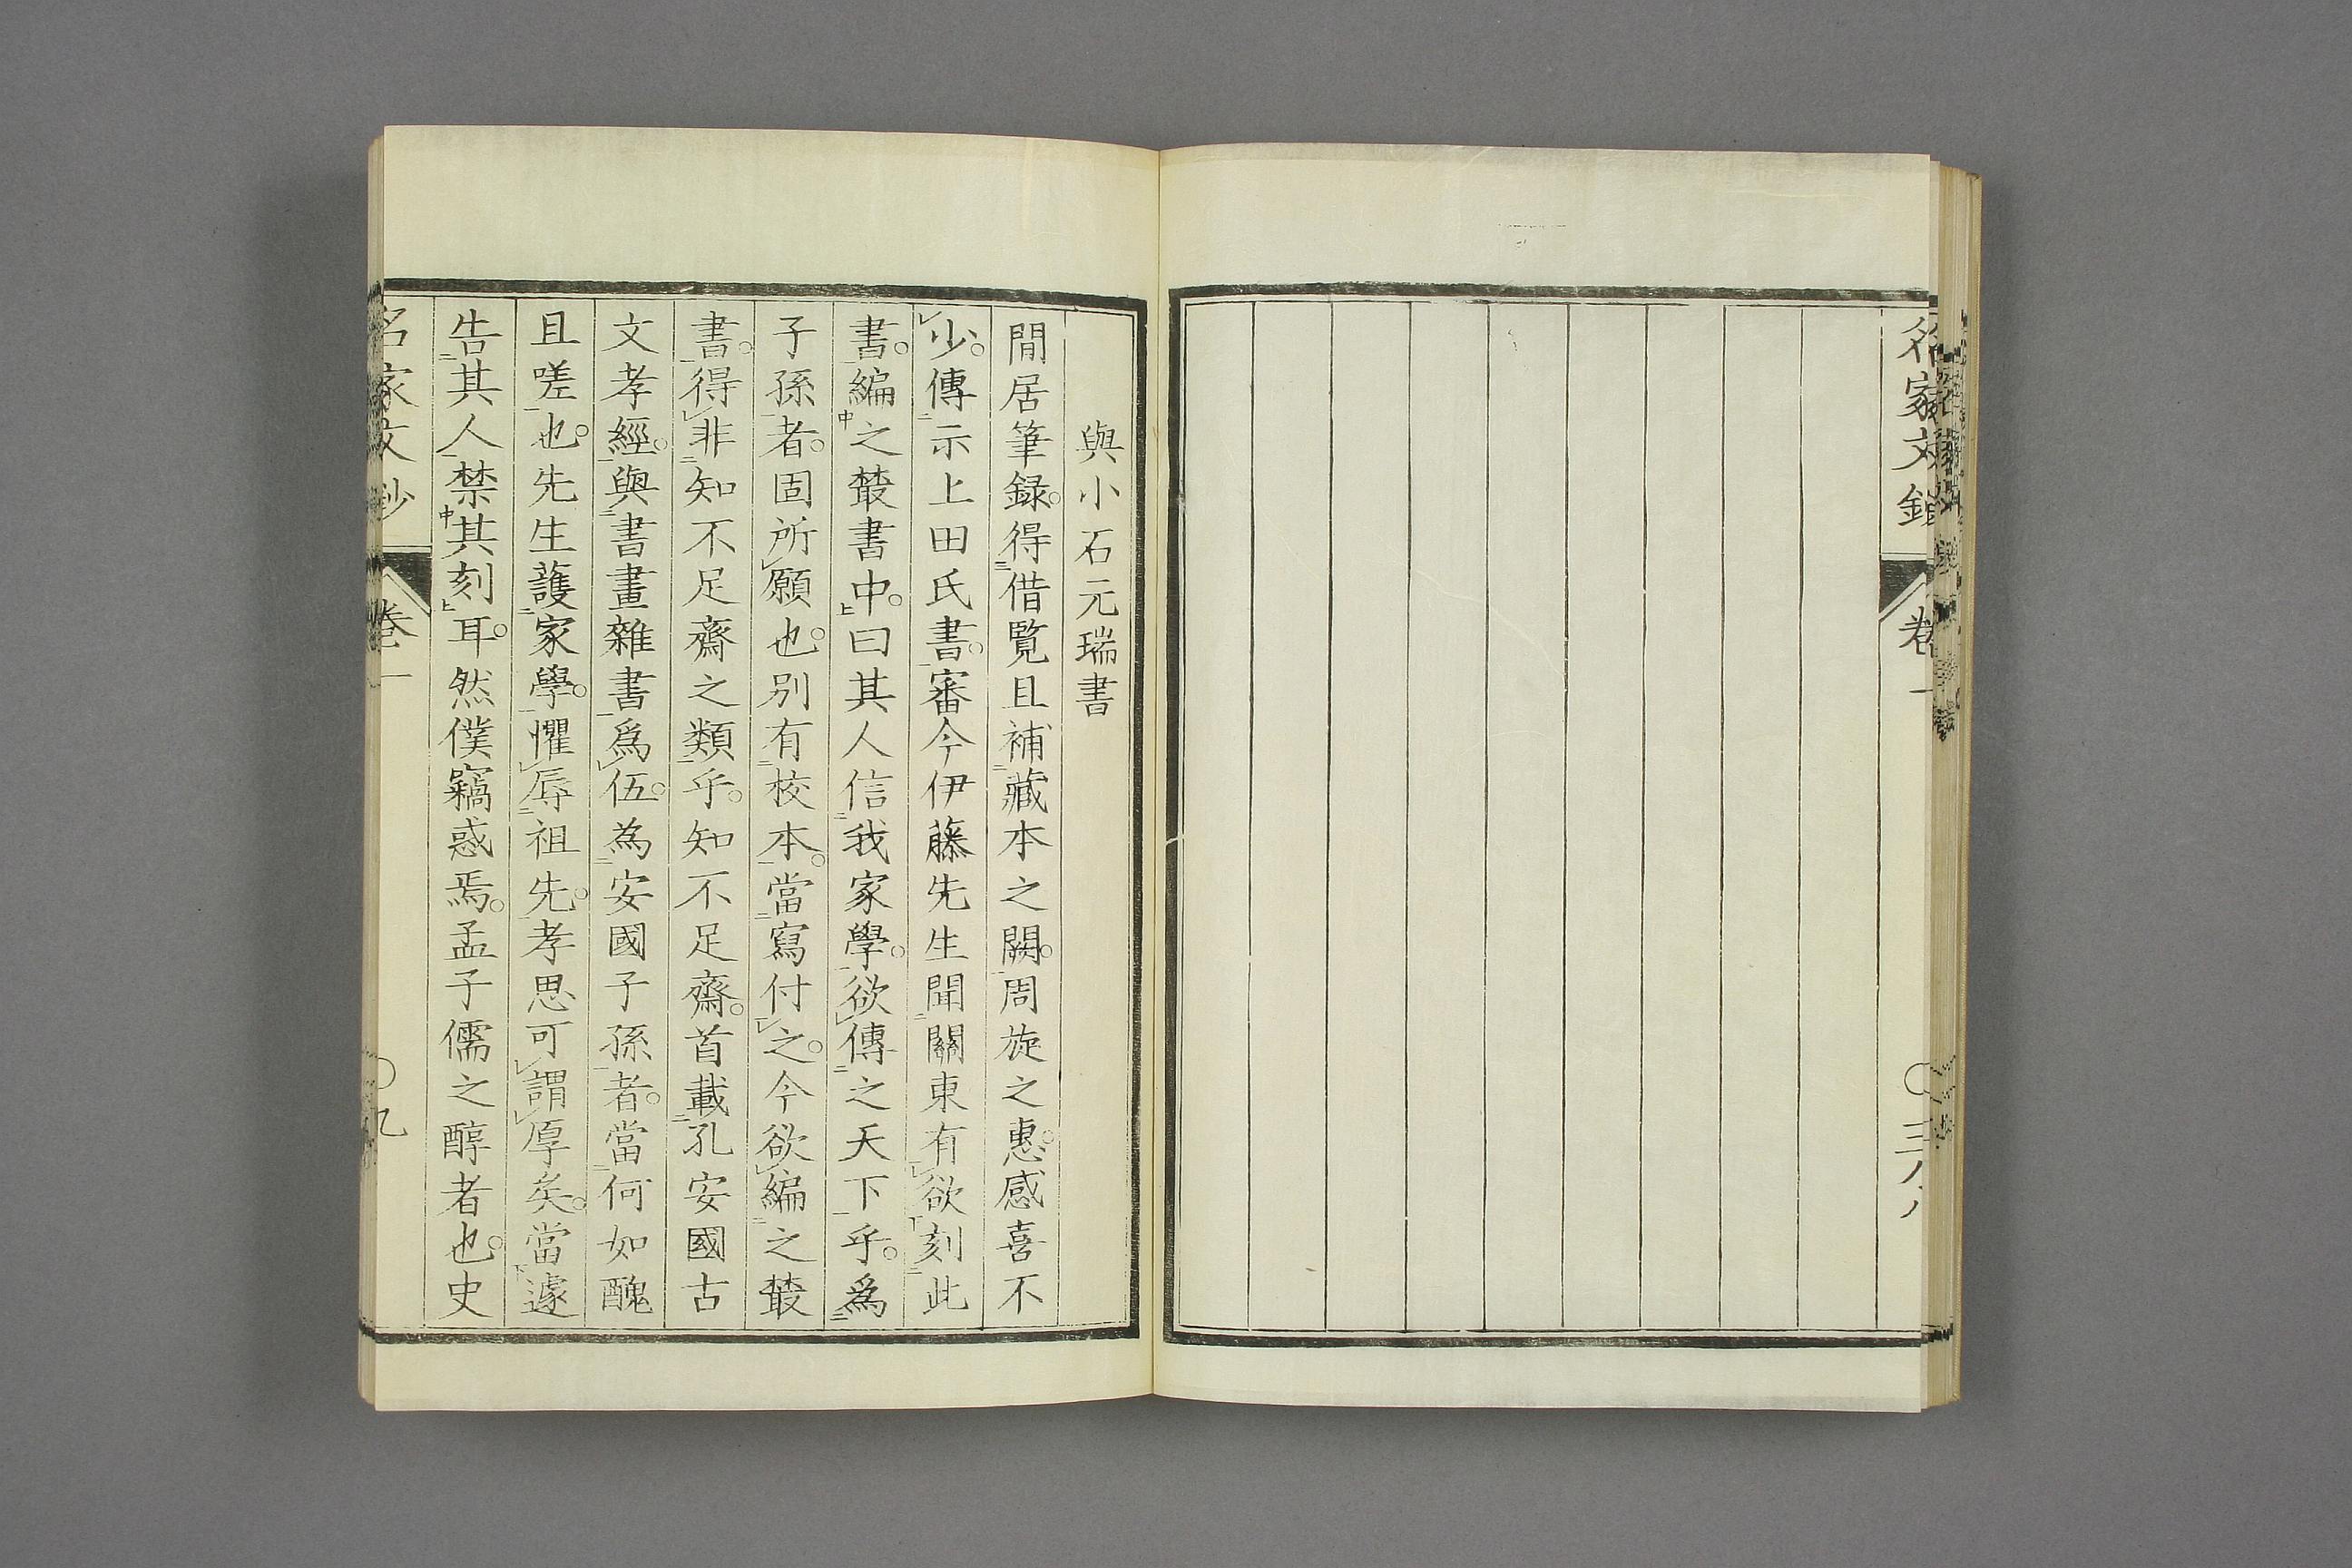 名家文鈔
卷一
與小石元瑞書
間居筆録。得借覧且補藏本之闕。周旋之惠。感喜不
少。傳示上田氏書。審今伊藤先生聞關東有欲刻此
書。編之叢書中。曰其人信我家學。欲傳之天下乎。為
子孫者。固所願也。別有校本。當寫付之。今欲編之叢
書。得非知不足齋之類乎。知不足齋。首載孔安國古
文孝經。與書畫雜書為伍。為安國子孫者。當何如醜
且嗟也。先生護家學。懼辱祖先。孝思可謂厚矣。當遽
告其人禁其刻耳。然僕竊惑焉。孟子儒之醇者也。史
名家文鈔
卷一
九